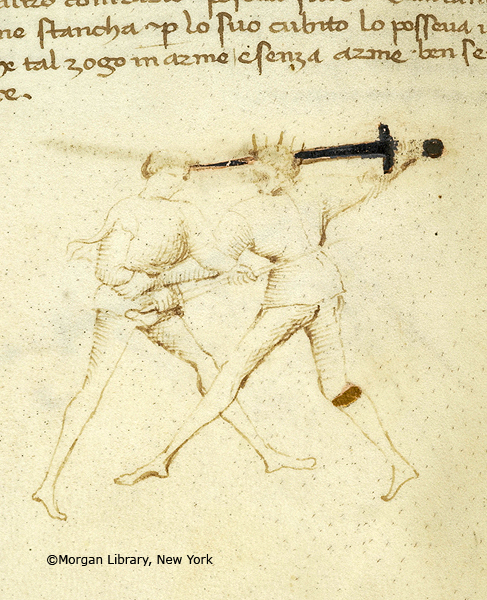 ne stancha e p lo suo cubito lo posseva
tal zogo in arme e senza arme ben se
ce.
©Morgan Library, New York